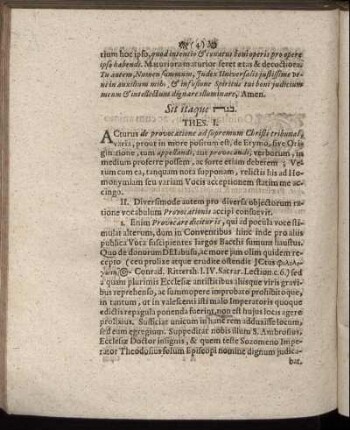 (4)
rium hoc ipso, quod intentio & conatus boni operis pro opere
ipso habendi. Maturiora maturior feret ætas & devotæ
Tu autem, Numen summum, Judex Universalis justissime ve-
ni in auxilium mihi, & infusione Spiritus tui boni judicium
meum & intellectum dignare illuminare, Amen.
Sit itaque
THES. I.
ACturus de provocatione ad supremum Christi tribunal,
varia, prout in more positum est, de Etymo, sive Ori-
ginatione, tum appellandi, tum provocandi, verborum, in
medium proferre possem, ac forte etiam deberem; Ve-
rum cum ea, tanquam nota supponam, relictis his ad Ho-
monymium seu variam Vocis acceptionem statim me ac-
cingo.
II. Diversimode autem pro diversa objectorum ra-
tione vocabulum Provocationis accipi consuevit.
1. Enim Provocare dicitur is, qui ad pocula voce sti-
mulat alterum, dum in Conventibus hinc inde pro aliis
publica Vota suscipientes largos Bacchi sumunt haustus.
Quo de donorum DEI abusu, ac more jam olim quidem re-
cepto (ceu prolixe atque erudite ostendit JCtus
Conrad. Rittersh. l. IV. Sacrar. Lection. c. 6.) sed
à quam plurimis Ecclesiæ antistitibus aliisque viris gravi-
bus reprehenso, ac summopere improbato prostibitoque,
in tantum, ut in valescenti isti malo Imperatoris quoque
edictis repagula ponenda fuerint, non est hujus loci agere
prolixius. Sufficiat unicum in hanc rem adduxisse locum,
sed eam egregium. Suppeditat nobis illum S. Ambrosius,
Ecclesiæ Doctor insignis, & quem teste Sozomeno Impe-
rator Theodosius solum Episcopi nomine dignum judica-
bat,